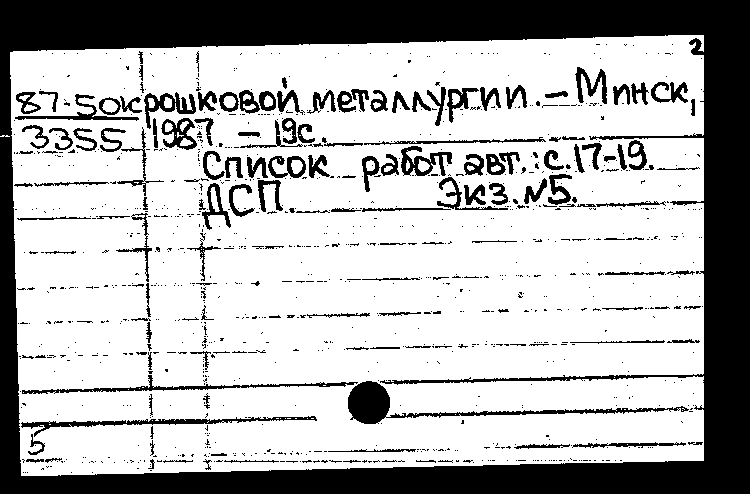 2
87-50к рошковой металлургии. – Минск,
3355 1987. – 19с.
Список работ авт.: с.17-19.
ДСП. Экз.№5.
5